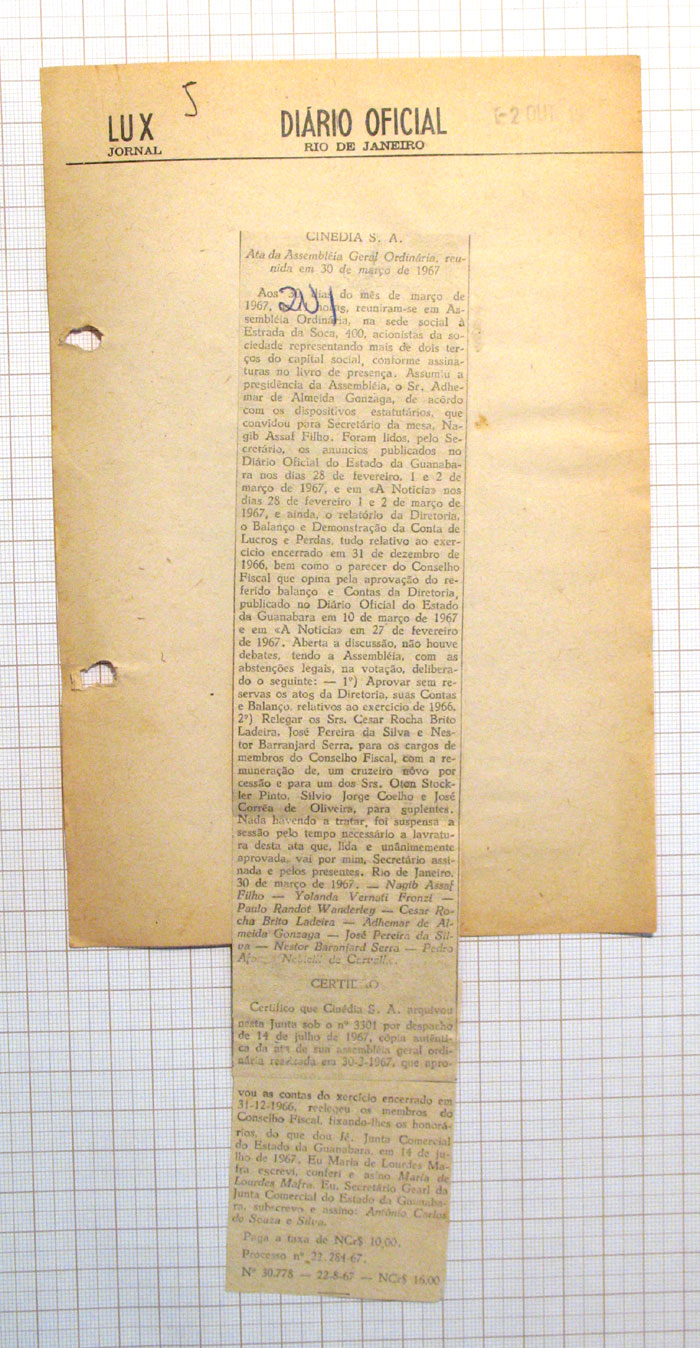 5
LUX
JORNAL
DIÁRIO OFICIAL
RIO DE JANEIRO
2 OUT
CINÉDIA S. A.
Ata da Assembléia Geral Ordinária, reu-
nida em 30 de março de 1967
Aos 30 dias do mês de março de
1967, horas, reuniram-se em As-
sembléia Ordinária, na sede social à
Estrada da Soca, 400, acionistas da so-
ciedade representando mais de dois ter-
ços do capital social, conforme assina-
turas no livro de presença. Assumiu a
presidência da Assembléia, o Sr. Adhe-
mar de Almeida Gonzaga, de acôrdo
com os dispositivos estatutários, que
convidou para Secretário da mesa, Na-
gib Assaf Filho. Foram lidos, pelo Se-
cretário, os anuncios publicados no
Diário Oficial do Estado da Guanaba-
ra nos dias 28 de fevereiro, 1 e 2 de
março de 1967, e em «A Noticia» nos
dias 28 de fevereiro 1 e 2 de março de
1967, e ainda, o relatório da Diretoria,
o Balanço e Demonstração da Conta de
Lucros e Perdas, tudo relativo ao exer-
cício encerrado em 31 de dezembro de
1966, bem como o parecer do Conselho
Fiscal que opina pela aprovação do re-
ferido balanço e Contas da Diretoria,
publicado no Diário Oficial do Estado
da Guanabara em 10 de março de 1967
e em «A Noticia» em 27 de fevereiro
de 1967. Aberta a discussão, não houve
debates, tendo a Assembléia, com as
abstenções legais, na votação, delibera-
do o seguinte: — 1º) Aprovar sem re-
servas os atos da Diretoria, suas Contas
e Balanço, relativos ao exercicio de 1966.
2º) Relegar os Srs. Cesar Rocha Brito
Ladeira, José Pereira da Silva e Nes-
tor Barranjard Serra, para os cargos de
membros do Conselho Fiscal, com a re-
muneração de, um cruzeiro nôvo por
cessão e para um dos Srs. Oton Stock-
ler Pinto, Silvio Jorge Coelho e José
Corrêa de Oliveira, para suplentes.
Nada havendo a tratar, foi suspensa a
sessão pelo tempo necessário a lavratu-
ra desta ata que, lida e unânimemente
aprovada, vai por mim, Secretário assi-
nada e pelos presentes. Rio de Janeiro,
30 de março de 1967. — Nagib Assaf
Filho — Yolanda Vernati Fronzi —
Paulo Randot Wanderley — Cesar Ro-
cha Brito Ladeira — Adhemar de Al-
meida Gonzaga — José Pereira da Sil-
va — Nestor Baranjard Serra — Pedro
de
CERTIDÃO
Certifico que Cinédia S. A. arquivou
nesta Junta sob o nº 3301 por despacho
de 14 de julho de 1967, cópia autênti-
ca da ata de sua assembléia geral ordi-
nária realizada em 30-3-1967, que apro-
vou as contas do xercício encerrado em
31-12-1966, reelegeu os membros do
Conselho Fiscal, fixando-lhes os honorá-
rios, do que dou fé. Junta Comercial
do Estado da Guanabara, em 14 de ju-
lho de 1967. Eu Maria de Lourdes Ma-
fra escrevi, conferi e asino Maria de
Lourdes Mafra. Eu, Secretário Gearl da
Junta Comercial do Estado da Guanaba-
ra, subscrevo e assino: Antônio Carlos
de Souza e Silva.
Paga a taxa de NCr$ 10,00.
Processo nº 22.284-67.
Nº 30.778 — 22-8-67 — NCr$ 16,00